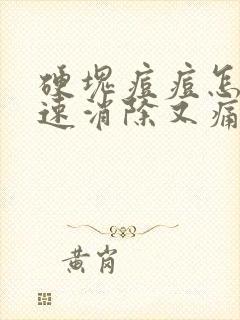 硬块痘痘怎
速消除又痛
黄岗